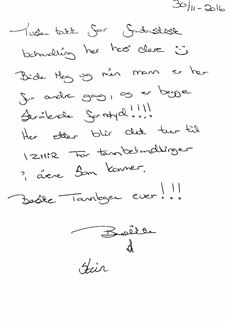 30/11-2016
Tusen takk for fantastisk
behandling her hos dere
Både meg og min mann er her
for andre gang, og er begge
strålende fornøyd!!!!
Her etter blir det tur til
IZMIR For tannbehandlinger
i årene som kommer.
Beste Tannlegen ever!!!
Stein